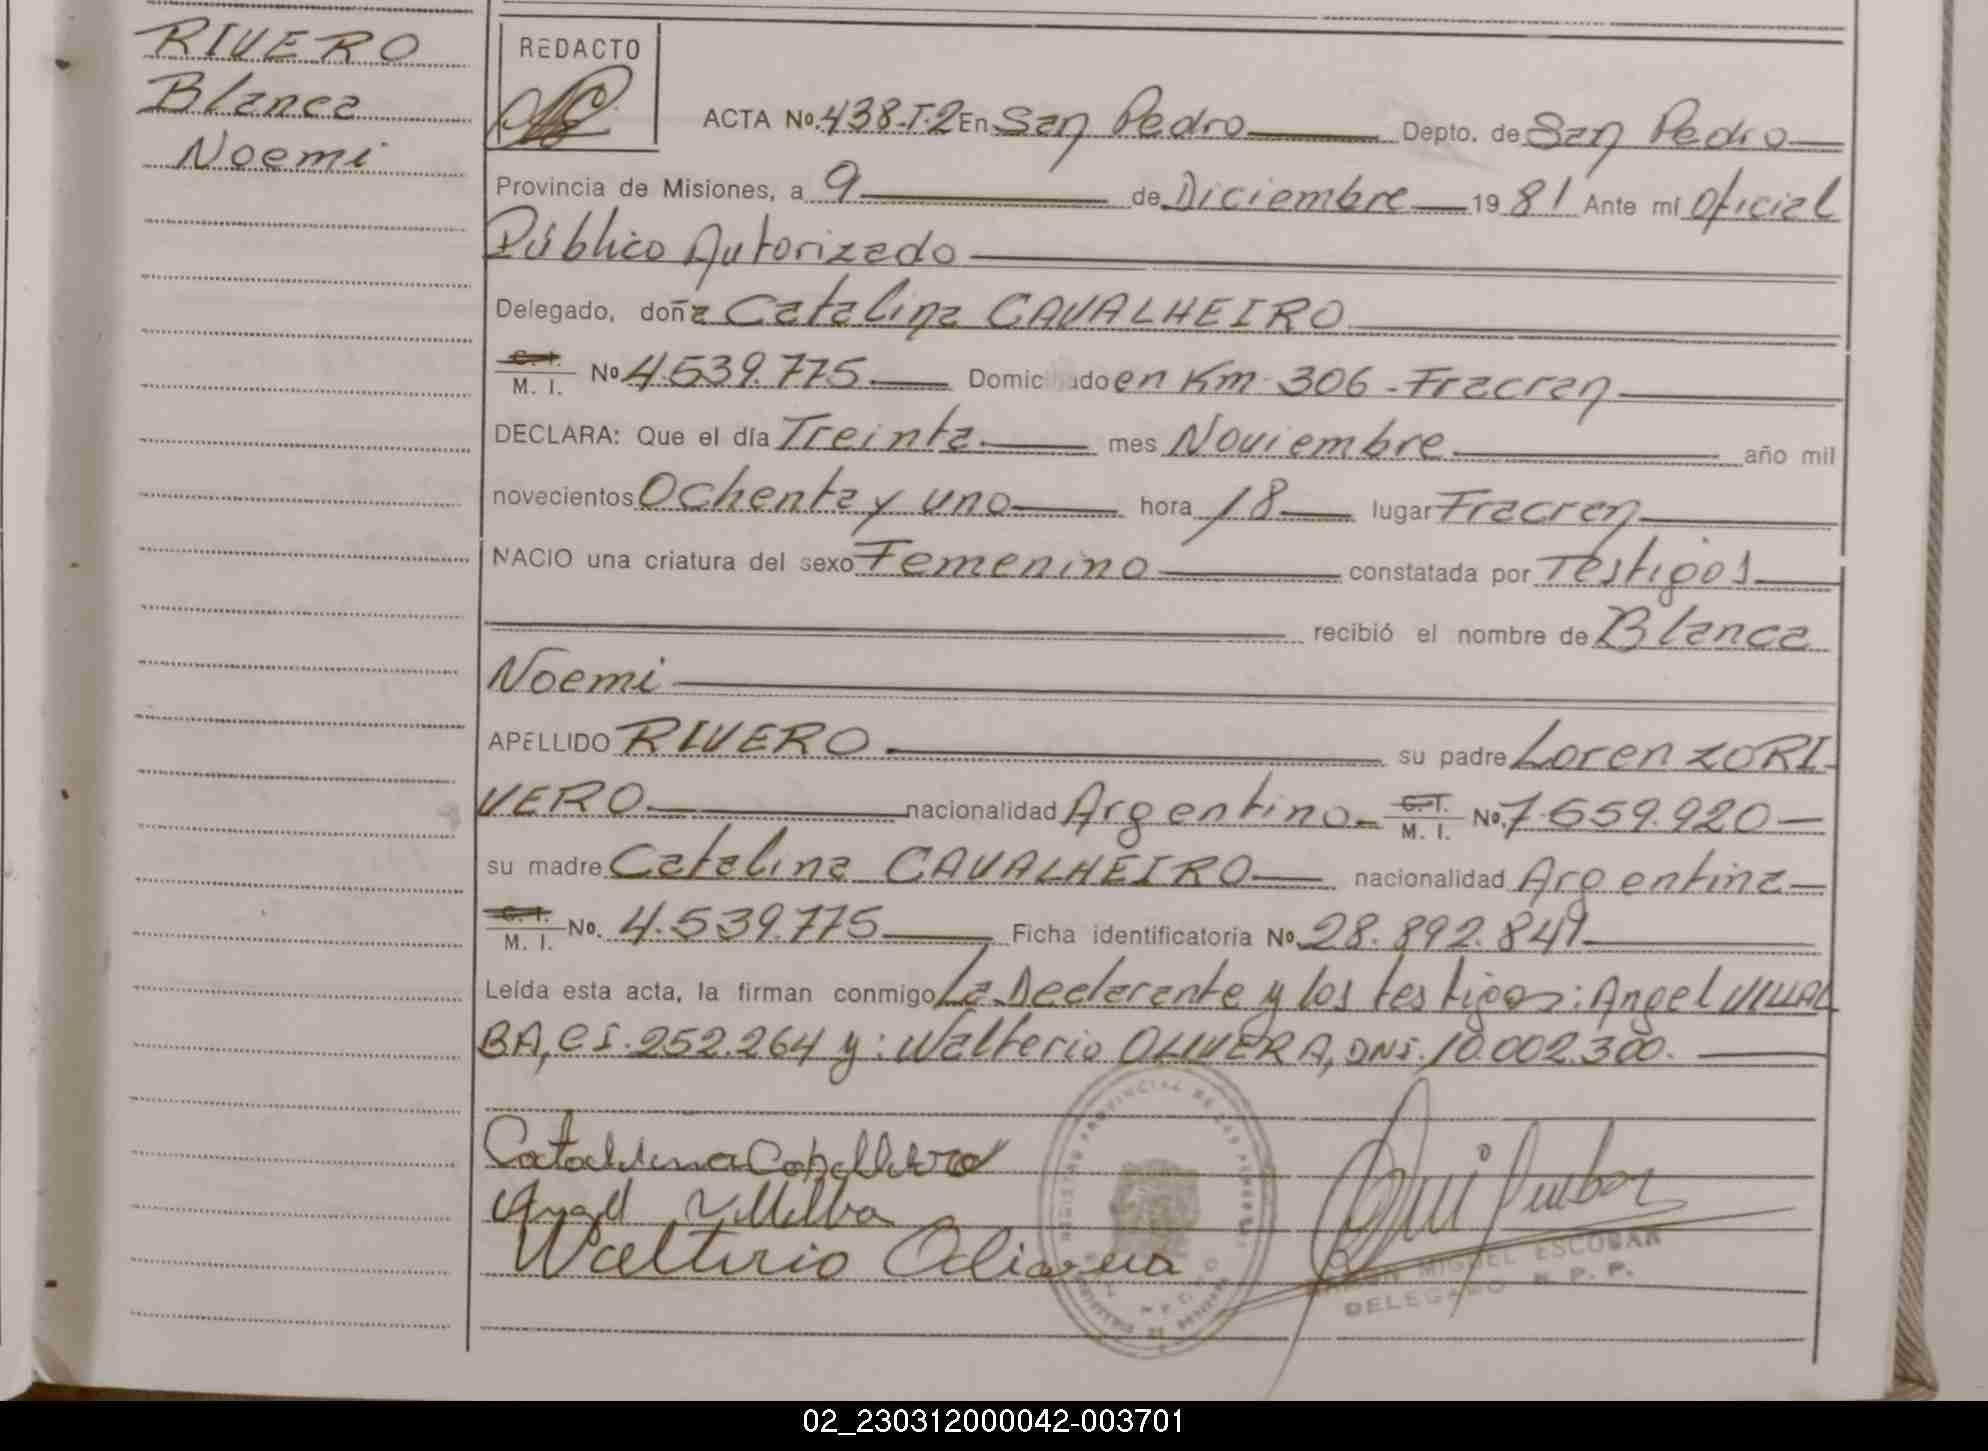 RIVERO
Blanca
Noemi
REDACTO
ACTA No. 438-T.2 En San Pedro Depto. de San Pedro
Provincia de Misiones, a 9 de Diciembre 1981 Ante mí Oficial
Público Autorizado
Delegado, doña Catalina CAVALHEIRO
C. I. M. I. No 4.539.775 Domici ado en Km. 306 - Fracran
DECLARA: Que el día Treinta mes Noviembre año mil
novecientos Ochenta y uno hora 18 lugar Fracran
NACIO una criatura del sexo Femenino constatada por Testigos
recibió el nombre de Blanca
Noemi
APELLIDO RIVERO su padre Lorenzo RI-
VERO nacionalidad Argentino C. I. M. I. No. 7.559.920
su madre Catalina CAVALHEIRO nacionalidad Argentina
C. I. M. I. No. 4.539.775 Ficha identificatoria No. 28.892.849
Leída esta acta, la firman conmigo La Declarante y los testigos: Angel VILLAL
BA, CI. 252.264 y: Walterio OLIVERA, DNI. 10.002.300.
REGISTRO PROVINCIAL DE LAS PERSONAS
Angel Villalba
Walterio Olivera
MIGUEL ESCOBAR
DELEGADO R. P. P.
02_230312000042-003701